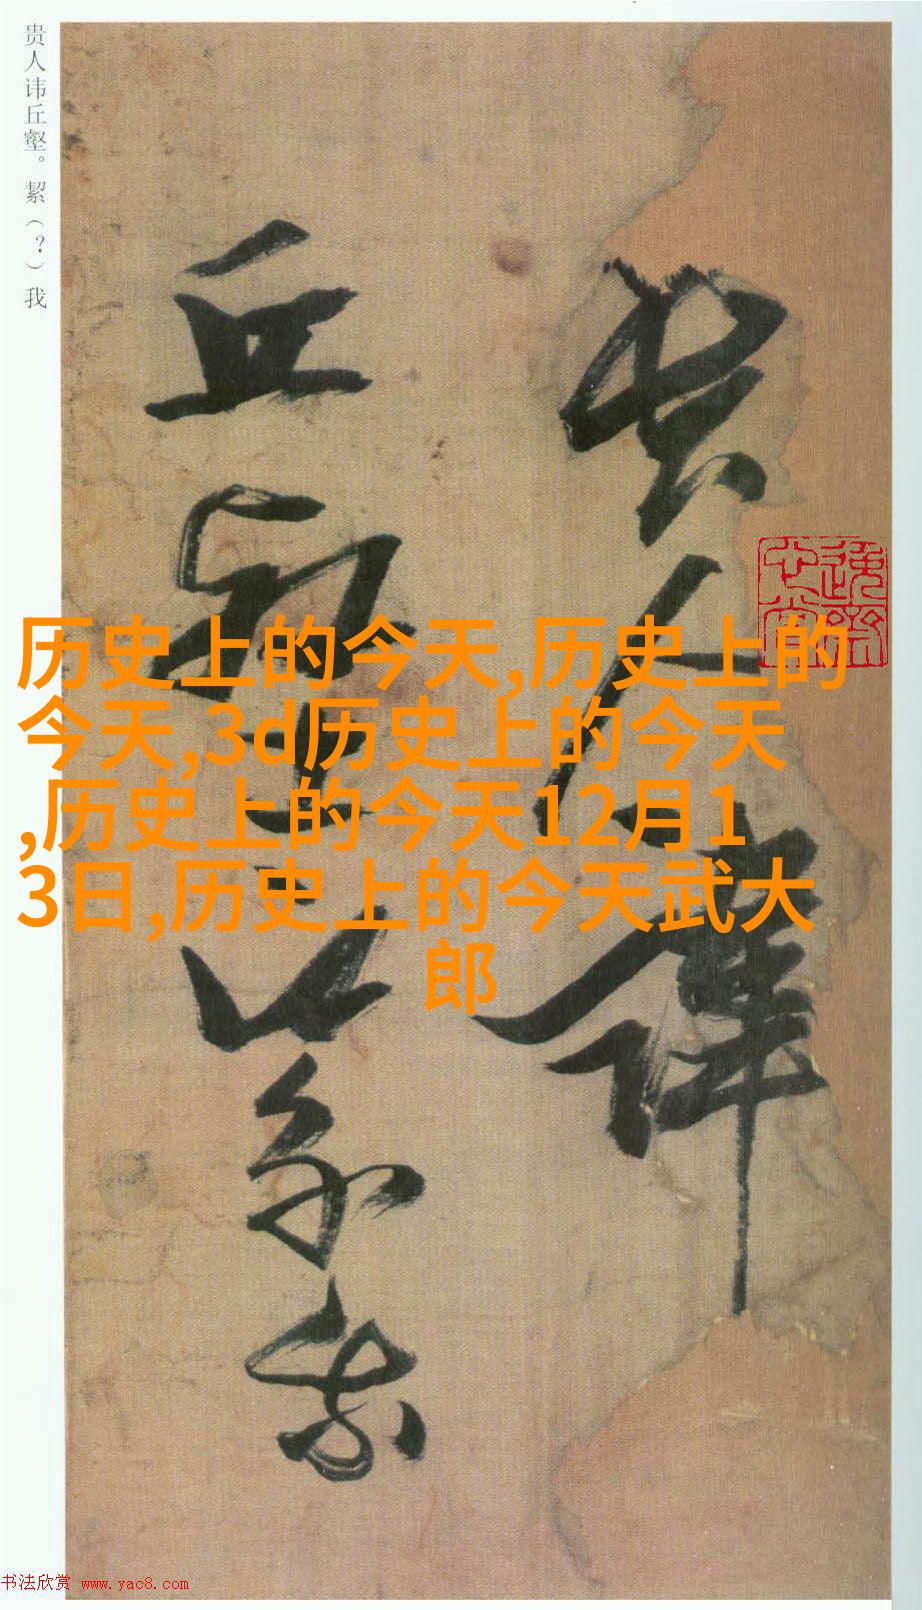 贵人讳丘壑。絜（？）我
贵人讳
丘壑
絜我
历史上的今天,历史上的
今天,3d历史上的今天
,历史上的今天12月1
3日,历史上的今天武大
郎
书法欣赏 www.yac8.com